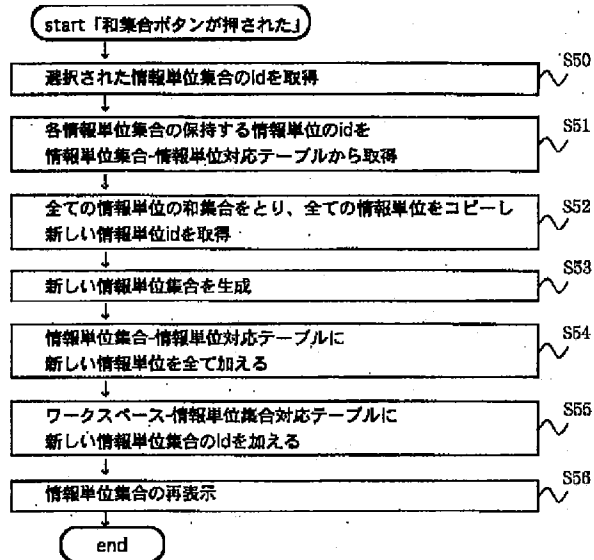 start「和集合ボタンが押された」
S50
選択された情報単位集合のidを取得
S51
各情報単位集合の保持する情報単位のidを
情報単位集合-情報単位対応テーブルから取得
S52
全ての情報単位の和集合をとり、全ての情報単位をコピーし
新しい情報単位idを取得
S53
新しい情報単位集合を生成
S54
情報単位集合-情報単位対応テーブルに
新しい情報単位を全て加える
S55
ワークスペース-情報単位集合対応テーブルに
新しい情報単位集合のidを加える
S56
情報単位集合の再表示
end